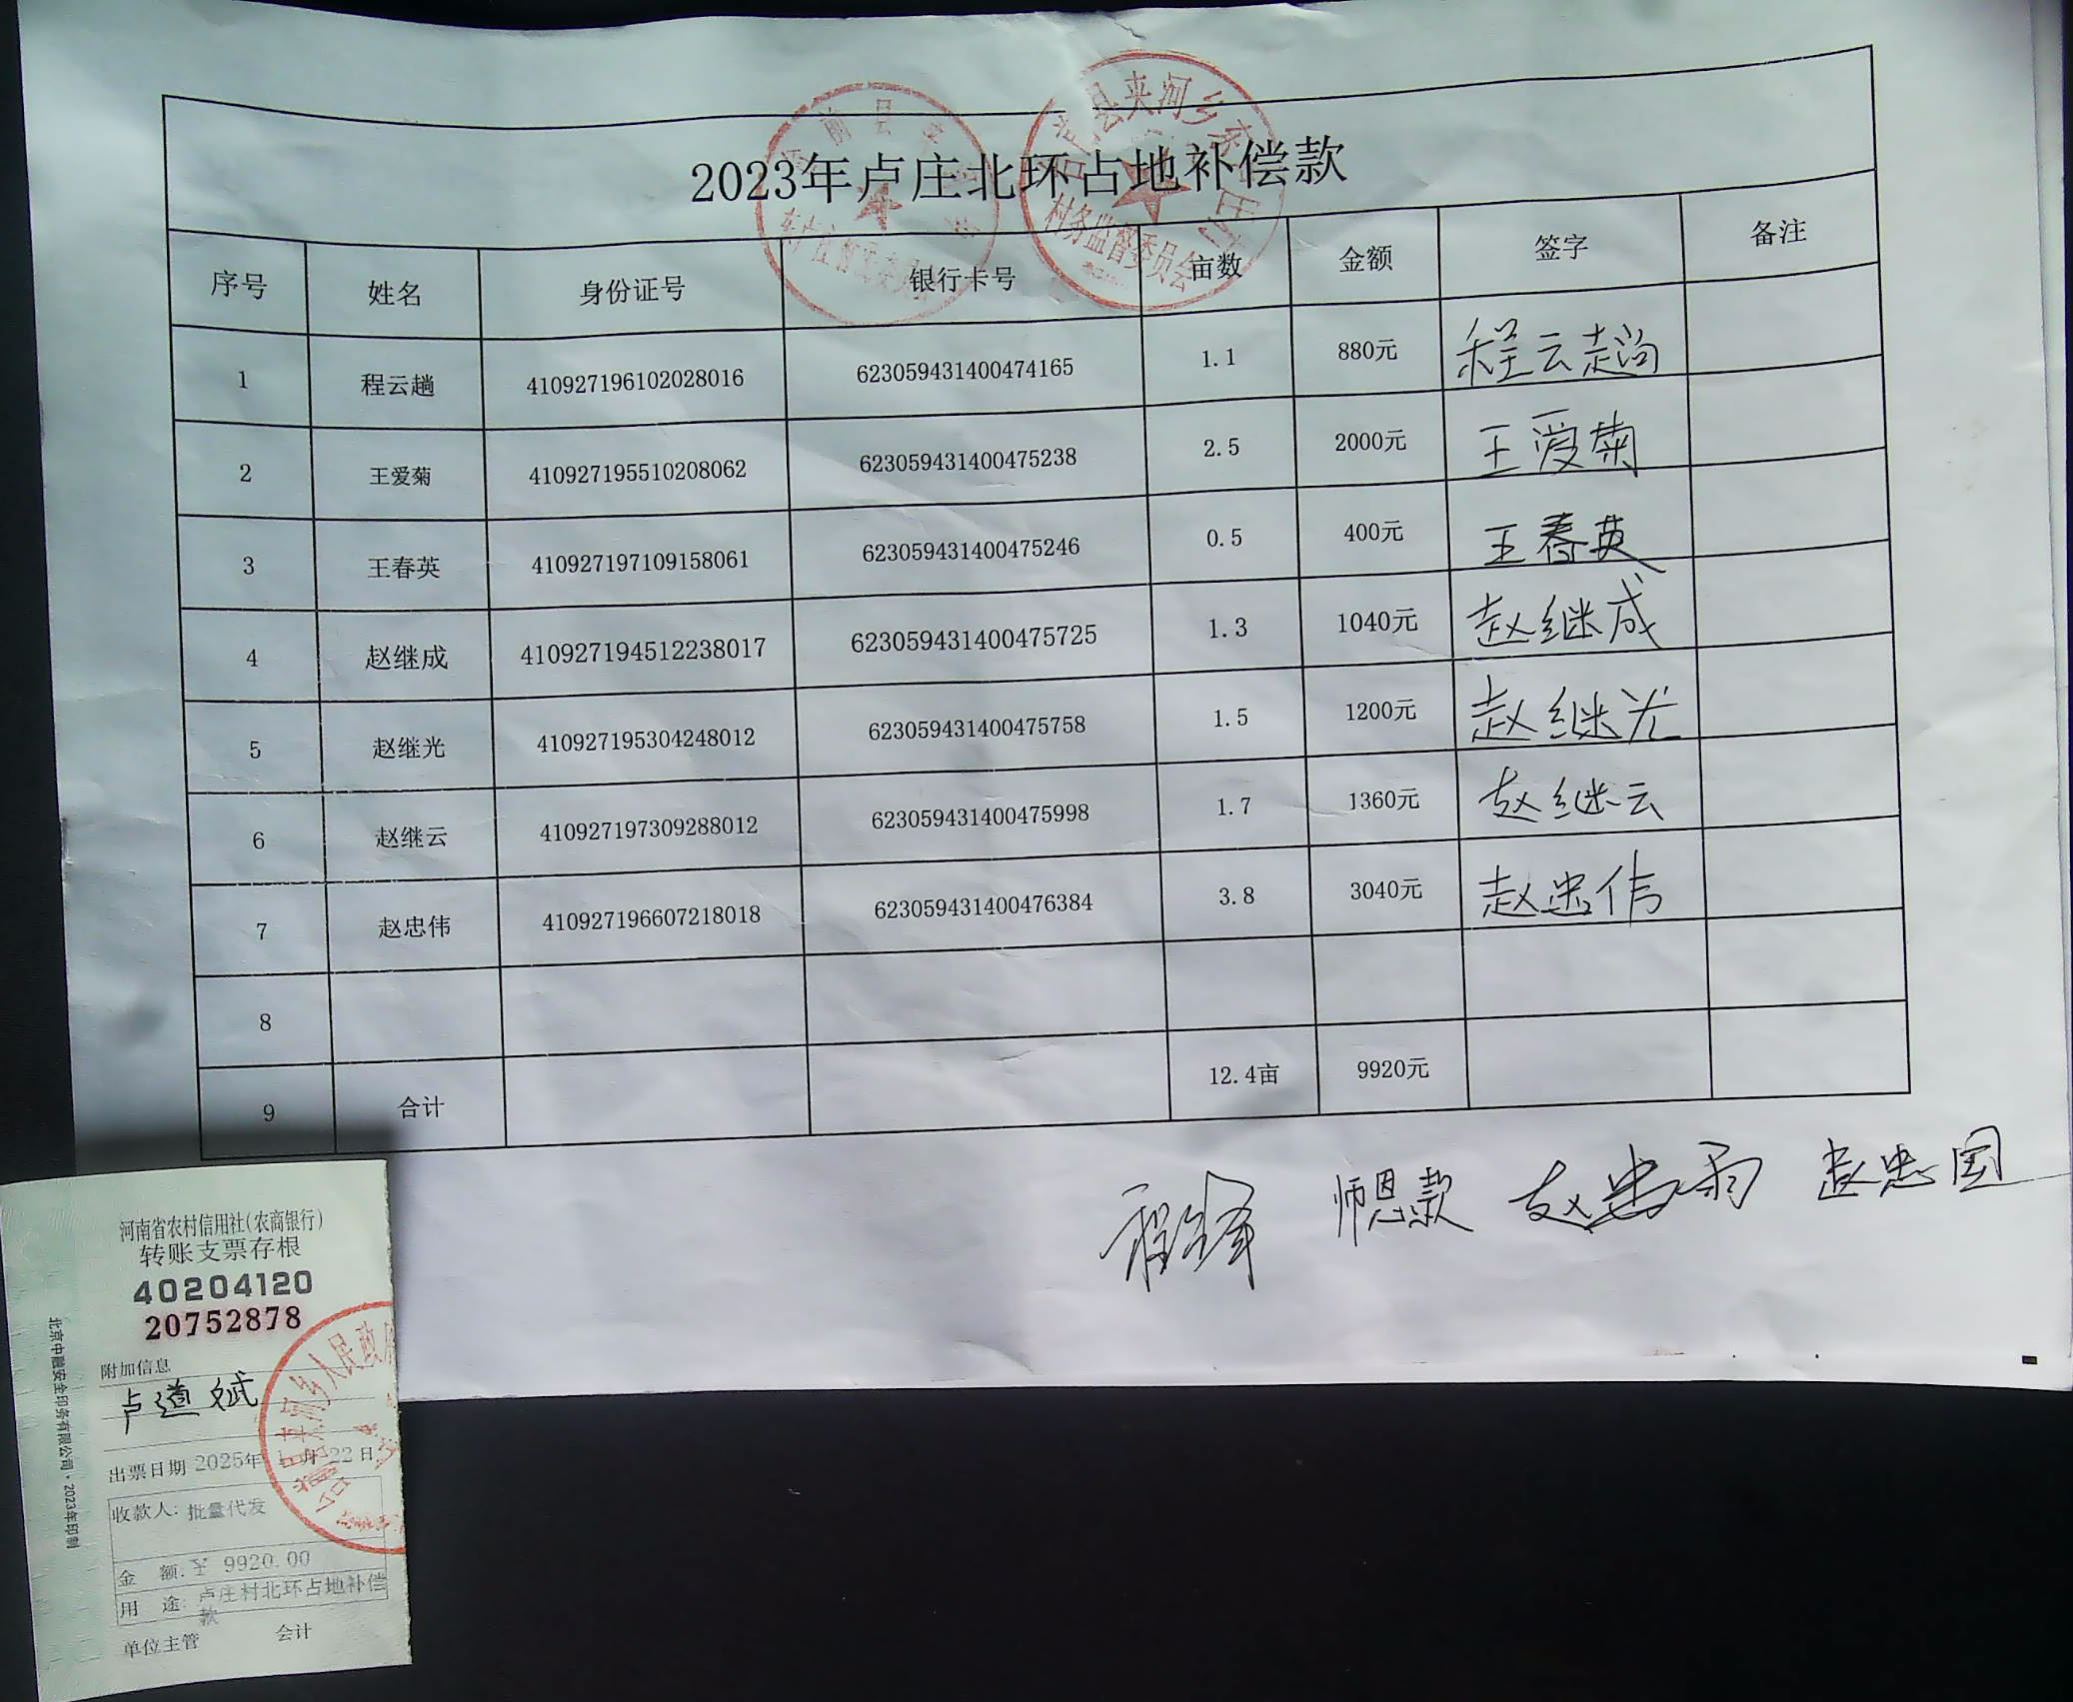 2023年卢庄北环占地补偿款
序号 姓名 身份证号 银行卡号 亩数 金额 签字 备注
1 程云趟 410927196102028016 623059431400474165 1.1 880元 程云趟
2 王爱菊 410927195510208062 623059431400475238 2.5 2000元 王爱菊
3 王春英 410927197109158061 623059431400475246 0.5 400元 王春英
4 赵继成 410927194512238017 623059431400475725 1.3 1040元 赵继成
5 赵继光 410927195304248012 623059431400475758 1.5 1200元 赵继光
6 赵继云 410927197309288012 623059431400475998 1.7 1360元 赵继云
7 赵忠伟 410927196607218018 623059431400476384 3.8 3040元 赵忠伟
8
9 合计 12.4亩 9920元
师恩款 赵忠国
县夹河乡东
村务监督委员会
河南省农村信用社(农商银行)
转账支票存根
40204120
20752878
附加信息
卢道斌
出票日期 2025年 月 22日
收款人: 批量代发
金 额: ¥ 9920.00
用 途: 卢庄村北环占地补偿
款
单位主管 会计
北京中融安全印务有限公司·2023年印制
夹河乡人民政府